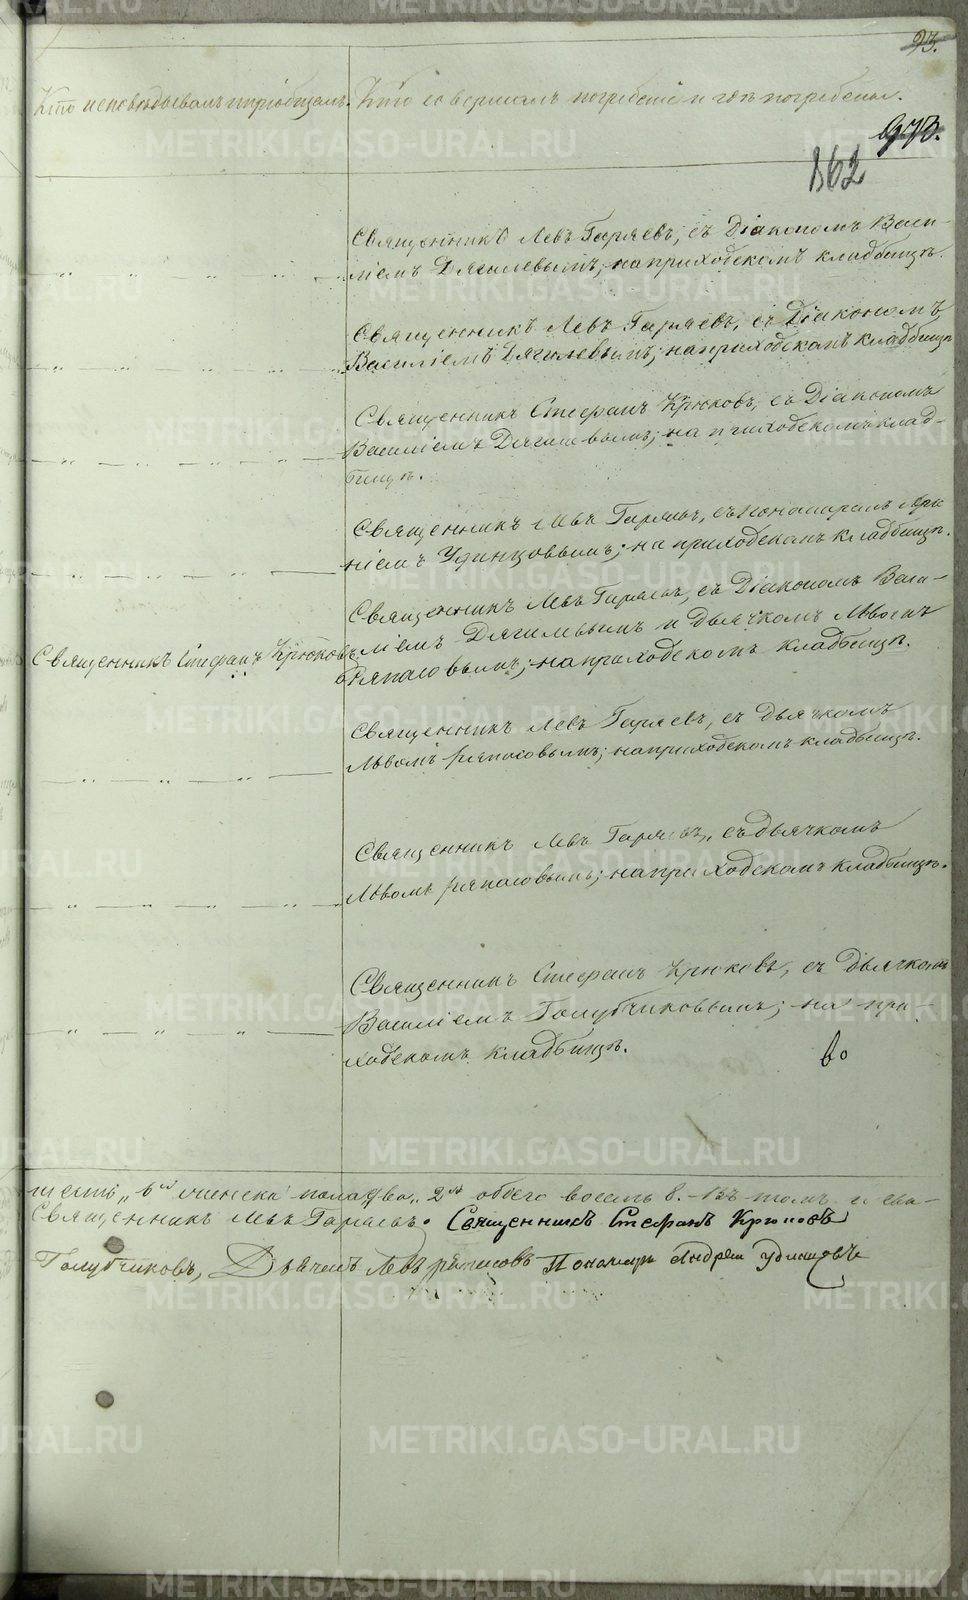 93.
Кто исповѣдывалъ и пріобщалъ. Кто совершалъ погребеніе и гдѣ погребены.
973.
862
Священникъ Левъ Гаряевъ, съ Діакономъ Васи-
ліемъ Дягилевымъ; на приходскомъ кладбищѣ.
Священникъ Левъ Гаряевъ, съ Діакономъ
Василіемъ Дягилевымъ; на приходскомъ кладбищѣ
Священникъ Стефанъ Крюковъ, съ Діакономъ
Василіемъ Дягилевымъ; на приходскомъ клад-
бищѣ.
Священникъ Левъ Гаряевъ, съ пономаремъ
Удинцовымъ; на приходскомъ кладбищѣ.
Священникъ Левъ Гаряевъ, съ Діакономъ Васи-
ліемъ Дягилевымъ и дьячкомъ Львомъ
Священникъ Стефанъ Крюковъ.
Ряпасовымъ; на приходскомъ кладбищѣ.
Священникъ Левъ Гаряевъ, съ дьячкомъ
Львомъ Ряпасовымъ; на приходскомъ кладбищѣ.
Священникъ Левъ Гаряевъ, съ дьячкомъ
Львомъ Ряпасовымъ; на приходскомъ кладбищѣ.
Священникъ Стефанъ Крюковъ, съ дьячкомъ
Василіемъ Голубчиковымъ; на при-
ходскомъ кладбищѣ.
во
шесть „6" женска пола два „2" обоего восемь 8. - Въ томъ и сви-
Священникъ Левъ Гаряевъ. Священникъ Стефанъ Крюковъ
Голубчиковъ, Дьячекъ Левъ Ряпасовъ Пономарь Андрей Удинцовъ
METRIKI.GASO-URAL.RU